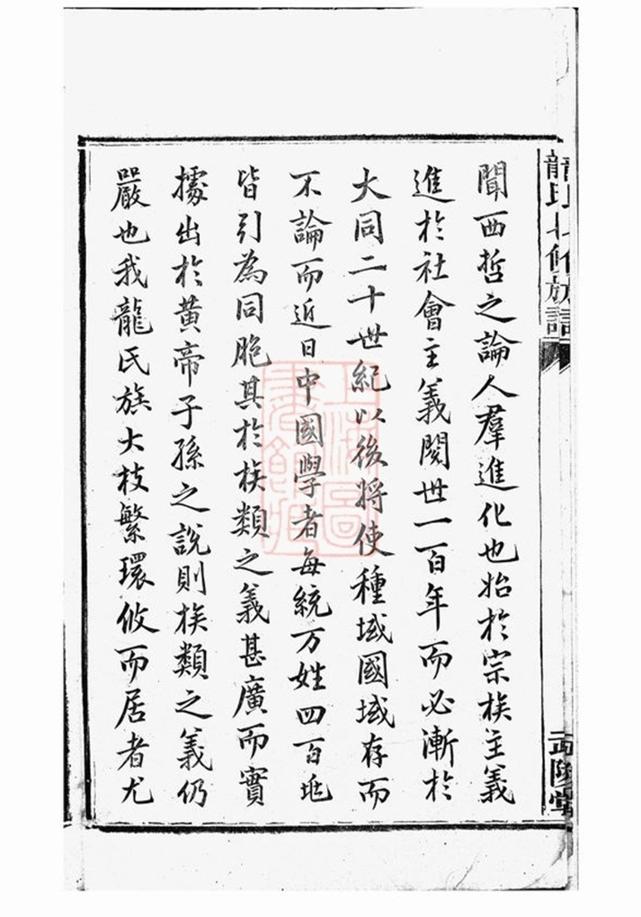 龍氏七修族譜
武陵堂
聞西哲之論人羣進化也始於宗族主義
進於社會主義閱世一百年而必漸於
大同二十世紀以後將使種域國域存而
不論而近日中國學者每統万姓四百兆
皆引為同胞其於族類之義甚廣而實
據出於黃帝子孫之說則族類之義仍
嚴也我龍氏族大枝繁環攸而居者尤